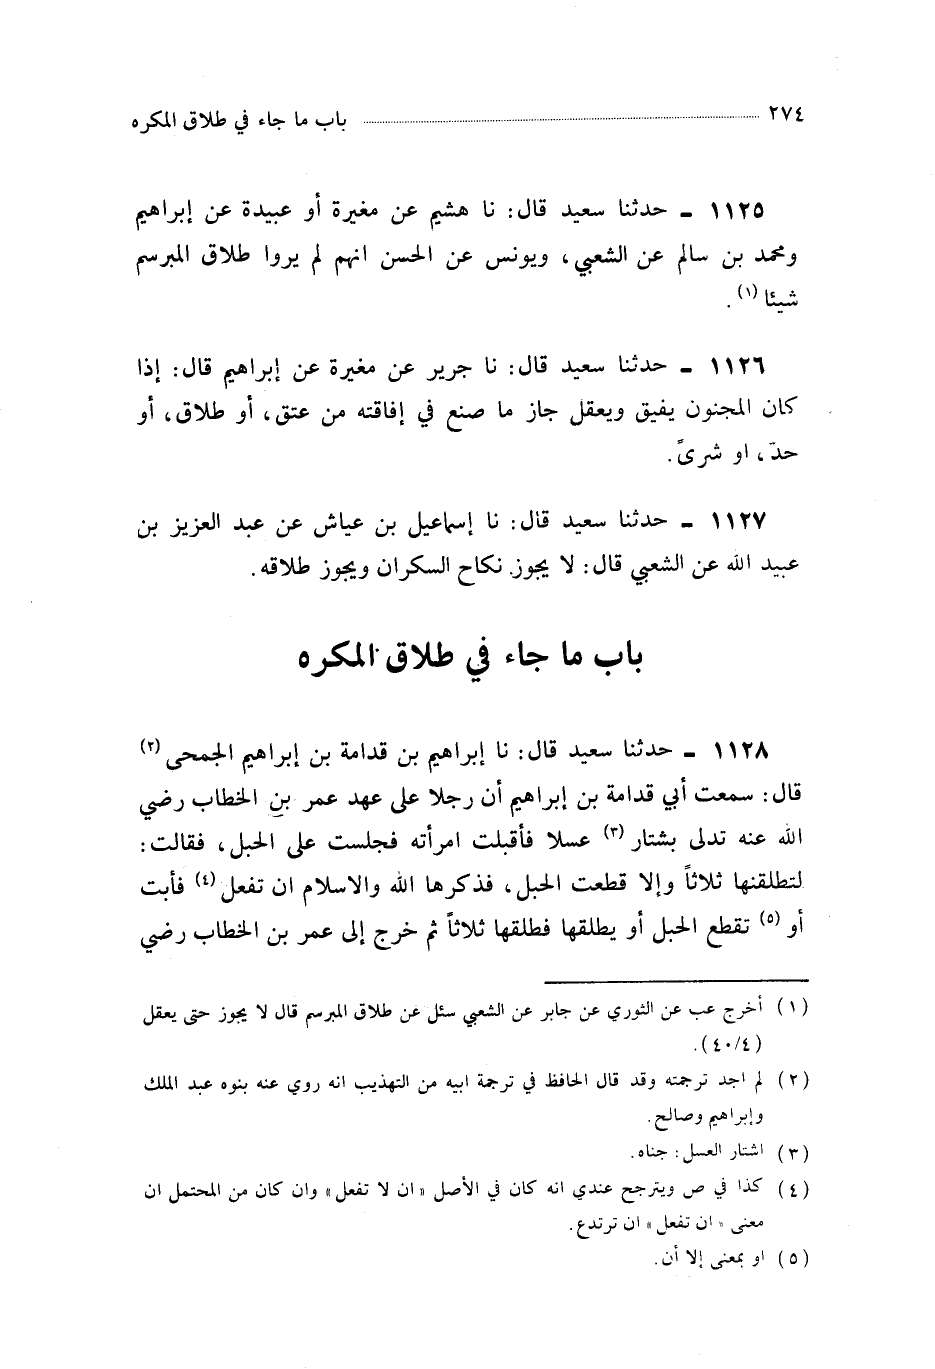 ٢٧٤ ........ باب ما جاء في طلاق المكره
١١٢٥ ـ حدثنا سعيد قال: نا هشيم عن مغيرة أو عبيدة عن إبراهيم
ومحمد بن سالم عن الشعبي، ويونس عن الحسن انهم لم يروا طلاق المبرسم
شيئا (١).
١١٢٦ ـ حدثنا سعيد قال: نا جرير عن مغيرة عن إبراهيم قال: إذا
كان المجنون يفيق ويعقل جاز ما صنع في إفاقته من عتق، أو طلاق، أو
حدّ، او شرىً.
١١٢٧ ـ حدثنا سعيد قال: نا إسماعيل بن عياش عن عبد العزيز بن
عبيد الله عن الشعبي قال: لا يجوز نكاح السكران ويجوز طلاقه.
باب ما جاء في طلاق المكره
١١٢٨ ـ حدثنا سعيد قال: نا إبراهيم بن قدامة بن إبراهيم الجمحى (٢)
قال: سمعت أبي قدامة بن إبراهيم أن رجلا على عهد عمر بن الخطاب رضي
الله عنه تدلى بشتار (٣) عسلا فأقبلت امرأته فجلست على الحبل، فقالت:
لتطلقنها ثلاثاً وإلا قطعت الحبل، فذكرها الله والاسلام ان تفعل (٤) فأبت
أو (٥) تقطع الحبل أو يطلقها فطلقها ثلاثاً ثم خرج إلى عمر بن الخطاب رضي
(١) أخرج عب عن الثوري عن جابر عن الشعبي سئل عن طلاق المبرسم قال لا يجوز حتى يعقل
(٤٠/٤).
(٢) لم اجد ترجمته وقد قال الحافظ في ترجمة ابيه من التهذيب انه روي عنه بنوه عبد الملك
وإبراهيم وصالح.
(٣) اشتار العسل: جناه.
(٤) كذا في ص ويترجح عندي انه كان في الأصل «ان لا تفعل» وان كان من المحتمل ان
معنى «ان تفعل» ان ترتدع.
(٥) او بمعنى إلا أن.